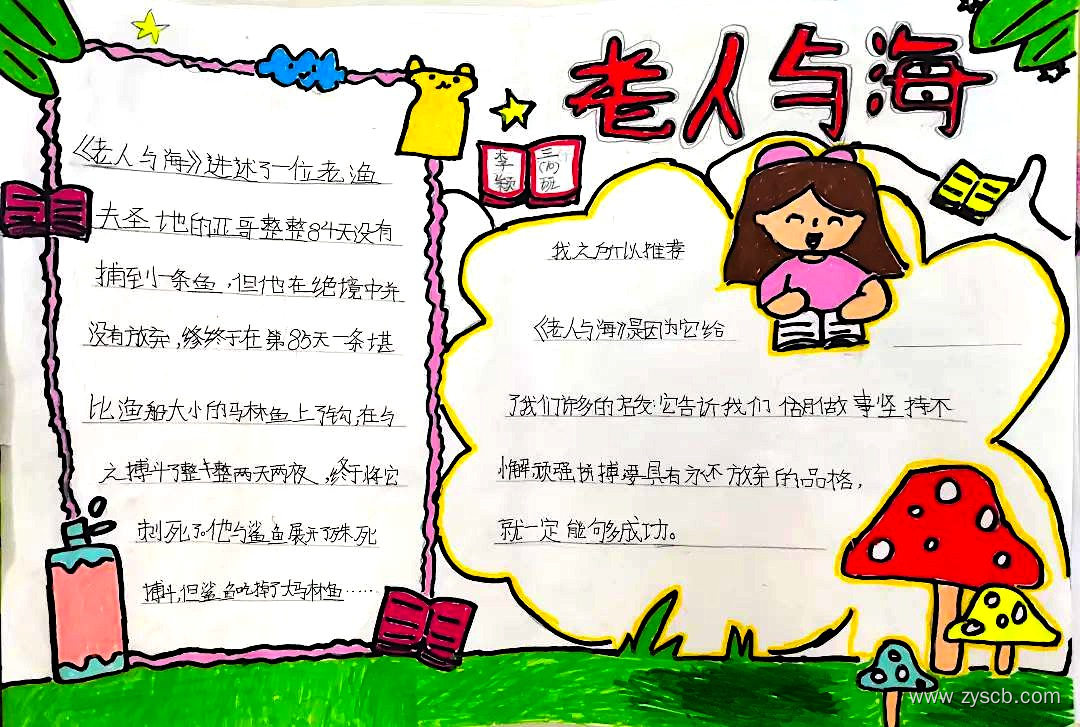 老人与海
李颖
三(4)班
《老人与海》讲述了一位老渔
夫圣地的亚哥整整84天没有
捕到一条鱼,但他在绝境中并
没有放弃,终于在第85天一条堪
比渔船大小的马林鱼上了钩,在与
之搏斗了整整两天两夜,终于将它
刺死了。他与鲨鱼展开了殊死
搏斗,但鲨鱼吃掉了大马林鱼……
我之所以推荐
《老人与海》是因为它给
了我们许多的启发:它告诉我们 做事坚持不
懈顽强拼搏要具有永不放弃的品格,
就一定能够成功。
www.zyscb.com